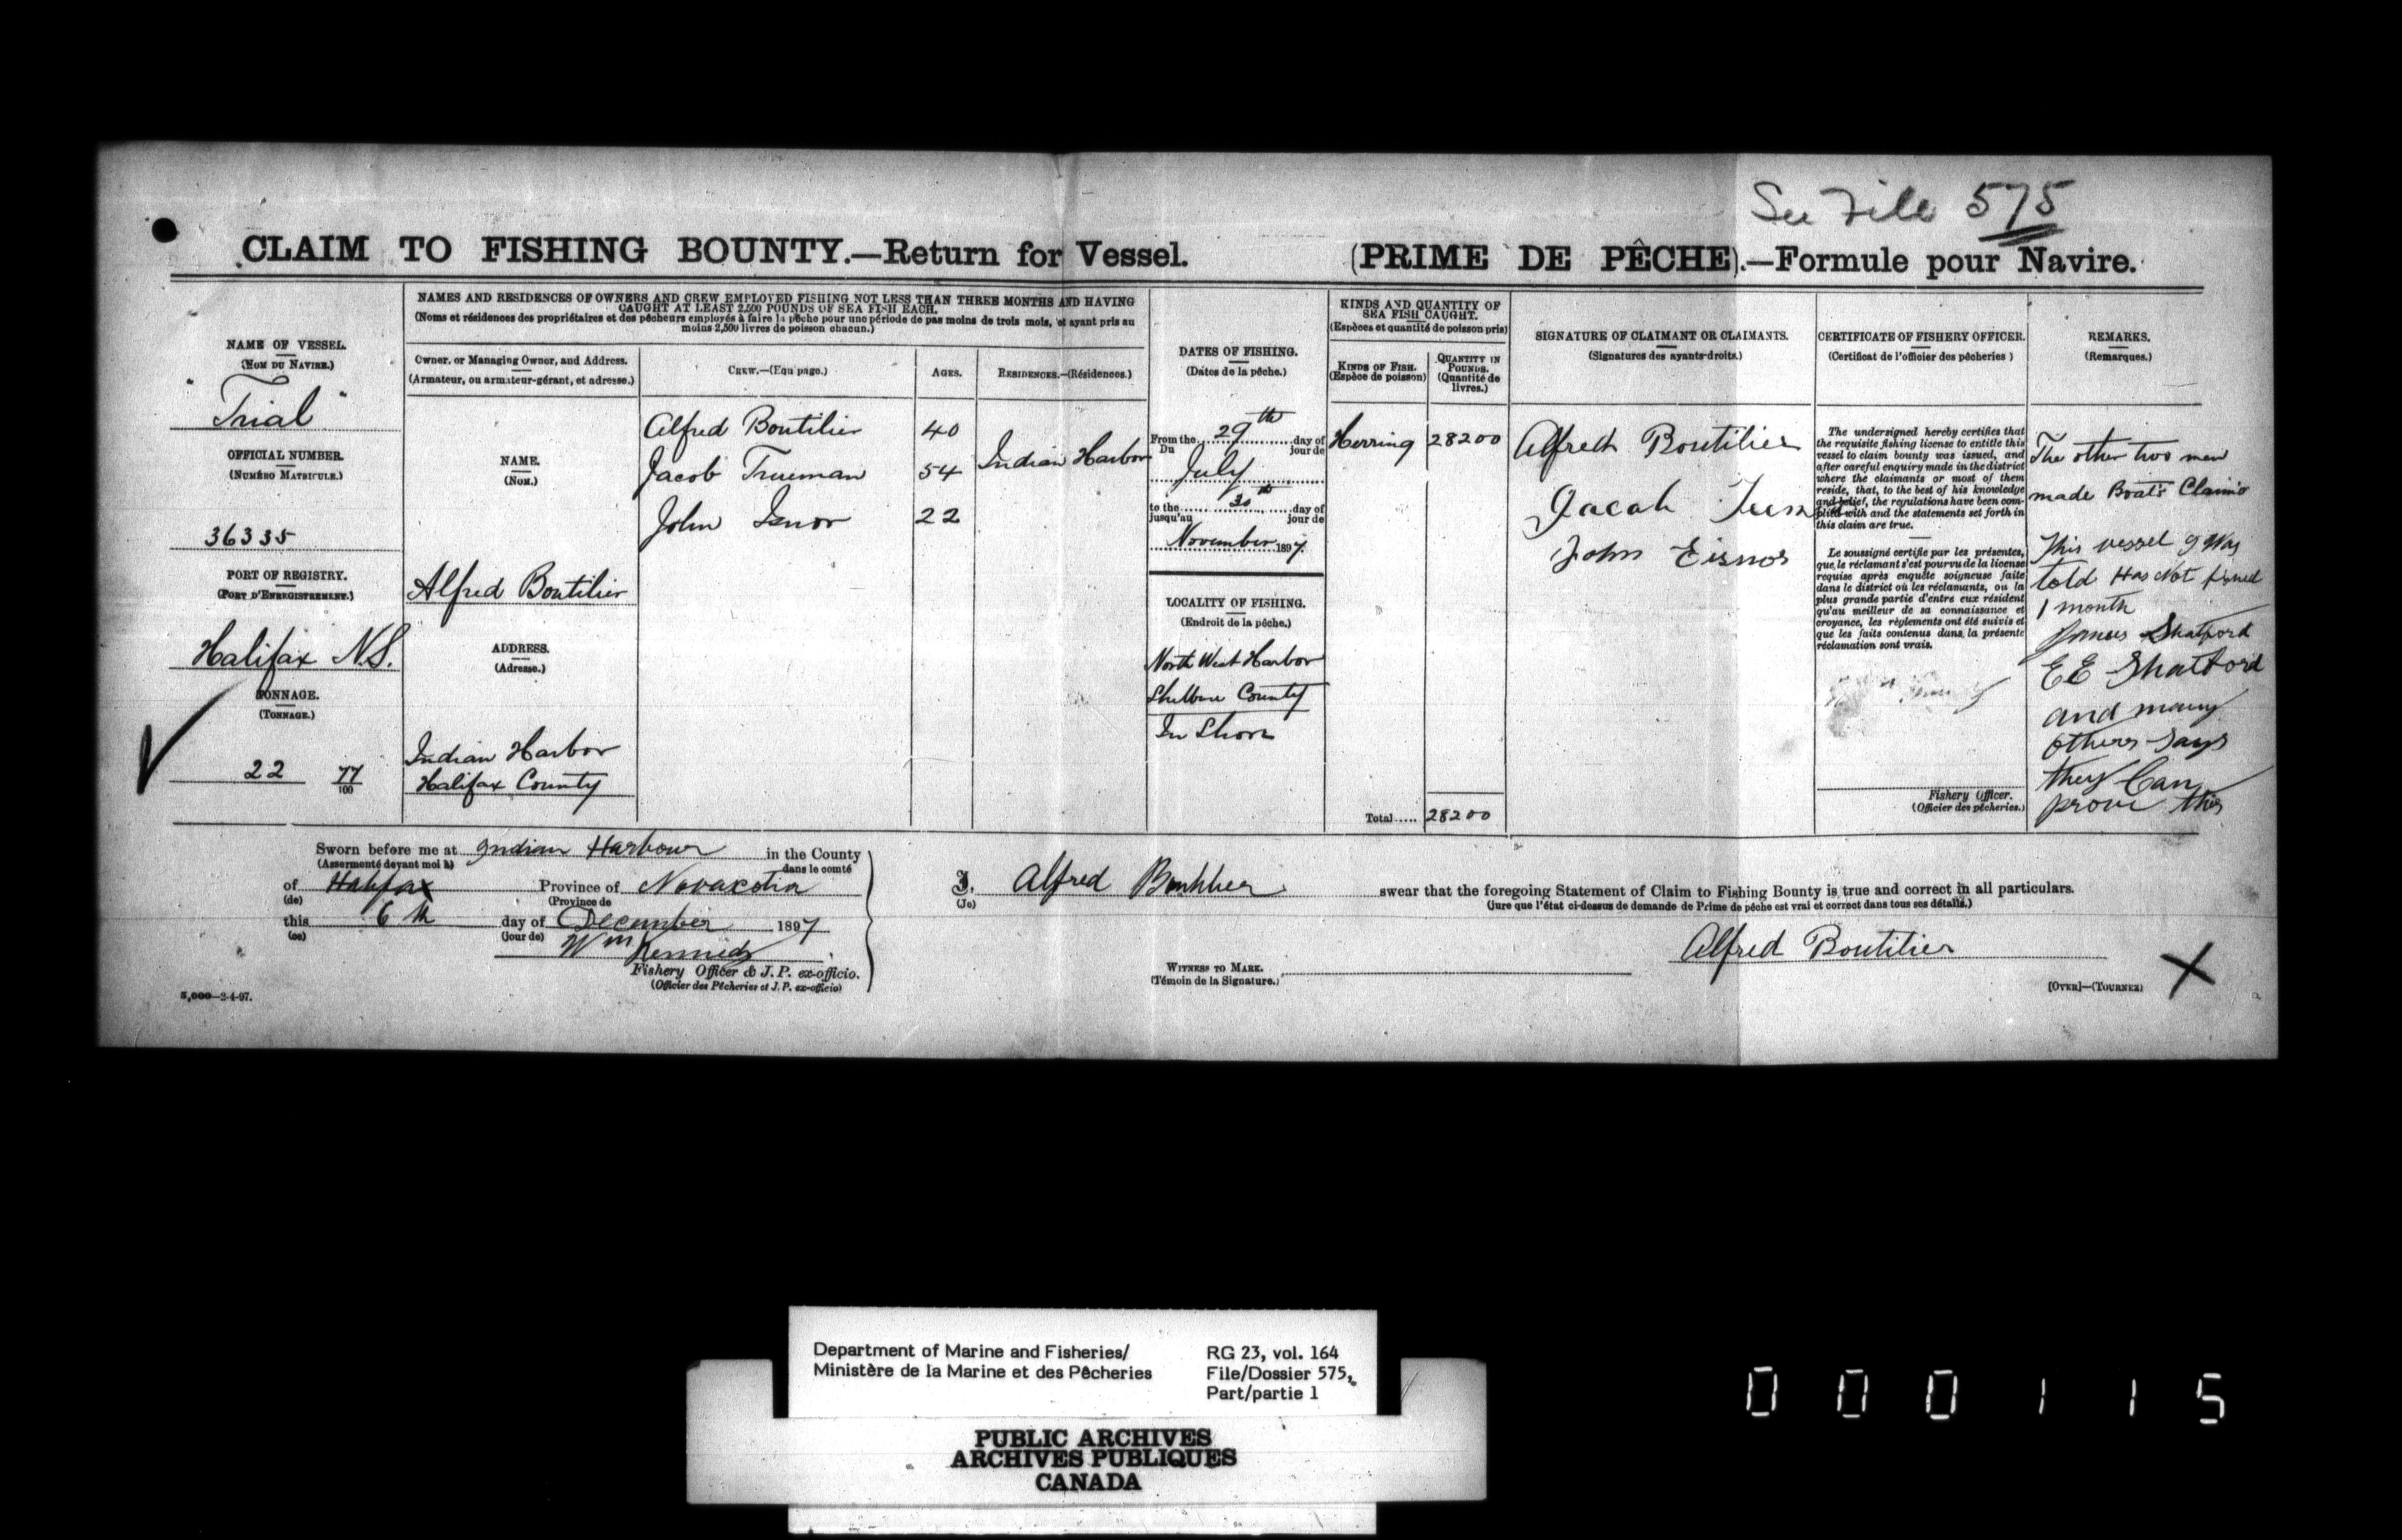 See File 575
CLAIM TO FISHING BOUNTY.—Return for Vessel. (PRIME DE PÊCHE).—Formule pour Navire.
NAME OF VESSEL.
(NOM DU NAVIRE.)
"Trial"
OFFICIAL NUMBER.
(NUMÉRO MATRICULE.)
36335
PORT OF REGISTRY.
(PORT D'ENREGISTREMENT.)
Halifax N.S.
TONNAGE.
(TONNAGE.)
22 77/100
NAMES AND RESIDENCES OF OWNERS AND CREW EMPLOYED FISHING NOT LESS THAN THREE MONTHS AND HAVING
CAUGHT AT LEAST 2,500 POUNDS OF SEA FISH EACH.
(Noms et résidences des propriétaires et des pêcheurs employés à faire la pêche pour une période de pas moins de trois mois, et ayant pris au
moins 2,500 livres de poisson chacun.)
Owner, or Managing Owner, and Address.
(Armateur, ou armateur-gérant, et adresse.)
NAME.
(NOM.)
Alfred Boutilier
ADDRESS.
(Adresse.)
Indian Harbor
Halifax County
CREW.—(Equipage.)
AGES.
RESIDENCES.—(Résidences.)
Alfred Boutilier 40
Jacob Trueman 54 Indian Harbor
John Isnor 22
DATES OF FISHING.
(Dates de la pêche.)
From the 29th day of
Du jour de
July
to the 30th day of
jusqu'au jour de
November 1897.
LOCALITY OF FISHING.
(Endroit de la pêche.)
North West Harbor
Shelburne County
In Shore
KINDS AND QUANTITY OF
SEA FISH CAUGHT.
(Espèces et quantité de poisson pris)
KINDS OF FISH.
(Espèce de poisson)
QUANTITY IN
POUNDS.
(Quantité de
livres.)
Herring 28200
Total..... 28200
SIGNATURE OF CLAIMANT OR CLAIMANTS.
(Signatures des ayants-droits.)
Alfred Boutilier
Jacob
John Eisnor
CERTIFICATE OF FISHERY OFFICER.
(Certificat de l'officier des pêcheries)
The undersigned hereby certifies that
the requisite fishing license to entitle this
vessel to claim bounty was issued, and
after careful enquiry made in the district
where the claimants or most of them
reside, that, to the best of his knowledge
and belief, the regulations have been com-
plied with and the statements set forth in
this claim are true.
Le soussigné certifie par les présentes,
que, le réclamant s'est pourvu de la license
requise après enquête soigneuse faite
dans le district où les réclamants, ou la
plus grande partie d'entre eux résident
qu'au meilleur de sa connaissance et
croyance, les règlements ont été suivis et
que les faits contenus dans la présente
réclamation sont vrais.
Fishery Officer.
(Officier des pêcheries.)
REMARKS.
(Remarques.)
The other two men
made Boat's Claims
This vessel I Was
told Has Not fished
1 month
James Shatford
EE Shatford
and many
others says
they Can
prove this
Sworn before me at Indian Harbour in the County
(Assermenté devant moi à) dans le comté
of Halifax Province of Novascotia
(de) (Province de
this 6th day of December 1897
(ce) (jour de)
Wm Kennedy
Fishery Officer & J.P. ex-officio.
(Officier des Pêcheries et J.P. ex-officio)
5,000—2-4-97.
I. Alfred Boutilier swear that the foregoing Statement of Claim to Fishing Bounty is true and correct in all particulars.
(Je) (jure que l'état ci-dessus de demande de Prime de pêche est vrai et correct dans tous ses détails.)
Alfred Boutilier
WITNESS TO MARK.
(Témoin de la Signature.)
[OVER]—(TOURNEZ)
X
Department of Marine and Fisheries/ RG 23, vol. 164
Ministère de la Marine et des Pêcheries File/Dossier 575,
Part/partie 1
PUBLIC ARCHIVES
ARCHIVES PUBLIQUES
CANADA
000115